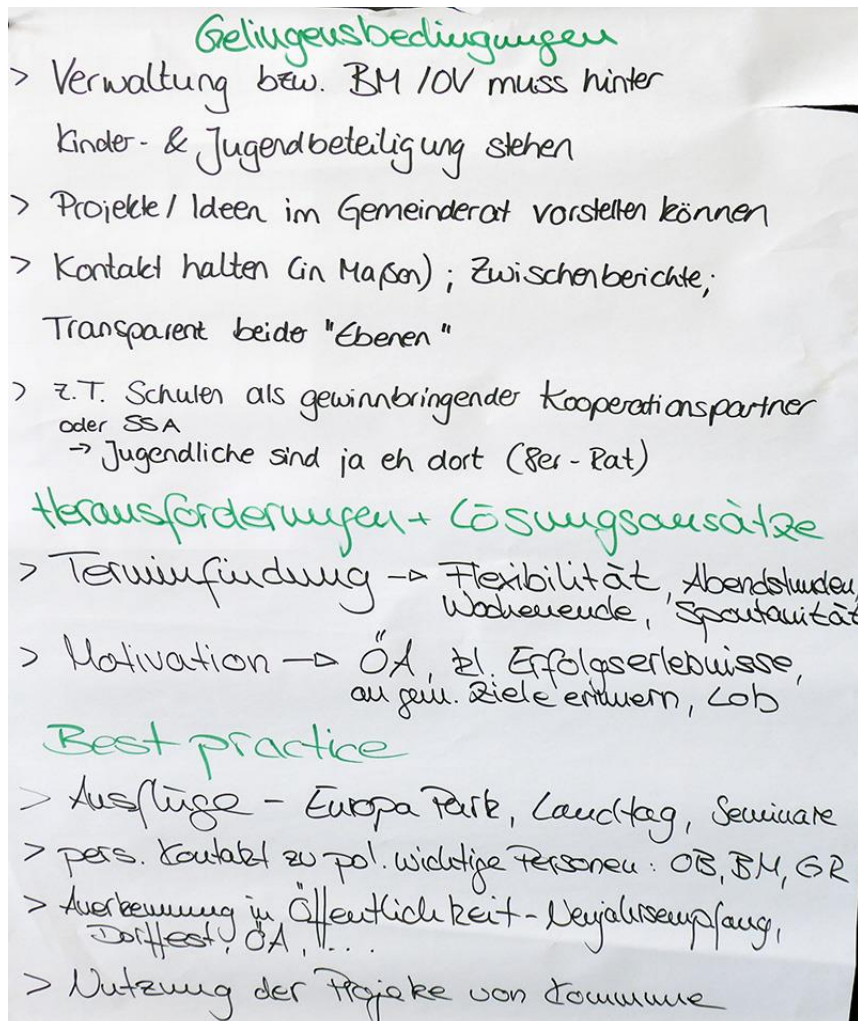 Gelingensbedingungen
> Verwaltung bzw. BM /OV muss hinter
Kinder- & Jugendbeteiligung stehen
> Projekte / Ideen im Gemeinderat vorstellen können
> Kontakt halten (in Maßen) ; Zwischenberichte;
Transparent beider "Ebenen"
> z.T. Schulen als gewinnbringender Kooperationspartner
oder SSA
-> Jugendliche sind ja eh dort (8er-Rat)
Herausforderungen + Lösungsansätze
> Terminfindung -> Flexibilität, Abendstunden,
Wochenende, Spontanität
> Motivation -> ÖA, kl. Erfolgserlebnisse,
an gem. Ziele erinnern, Lob
Best practice
> Ausflüge - Europa Park, Landtag, Seminare
> pers. Kontakt zu pol. wichtige Personen: OB, BM, GR
> Anerkennung in Öffentlichkeit - Neujahrsempfang,
Dorffest, ÖA, ....
> Nutzung der Projeke von Kommune